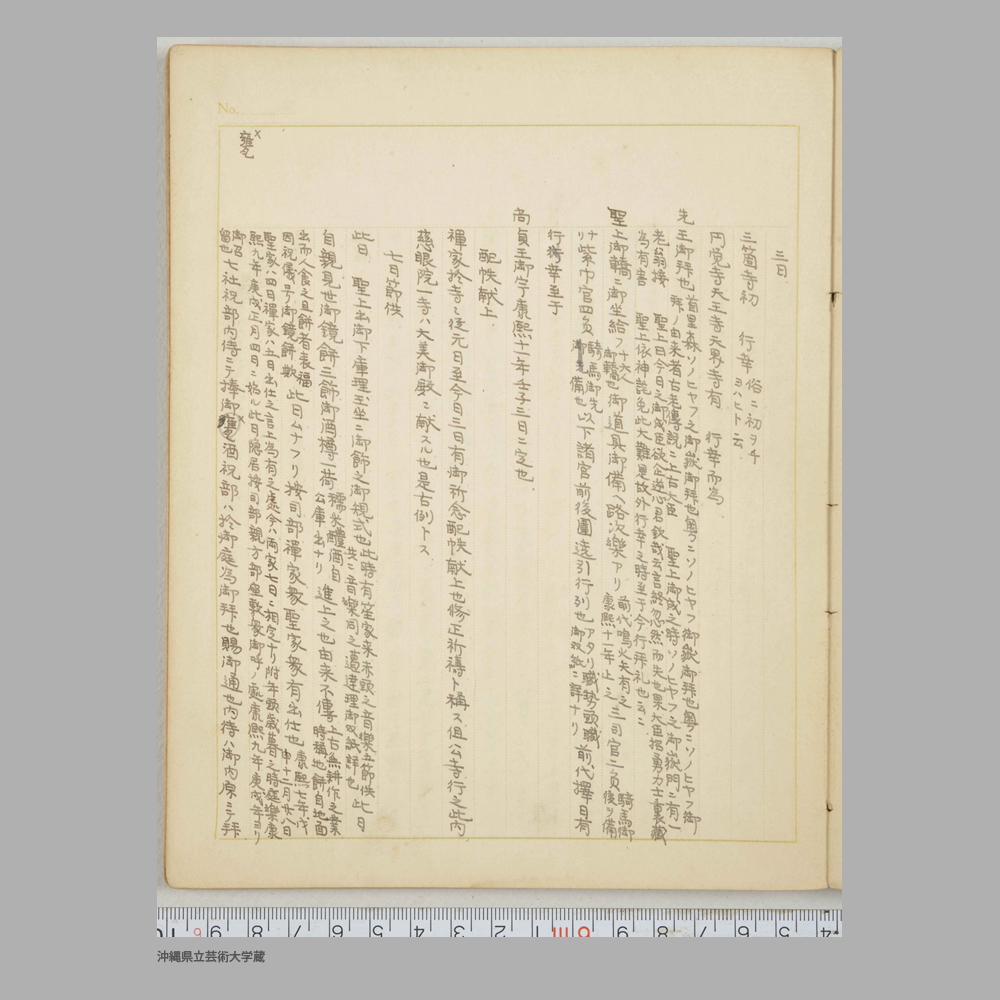 No.
甕
三日
三箇寺初 行幸 俗ニ初ヲチ
ヨハヒト云
円覚寺天王寺天界寺有 行幸而為
先王御拝也 首里森ソノヒヤフ之御嶽御拝也粤ニソノヒヤフ御嶽御拝也粤ニソノヒヤフ御
拝ノ由来者古老傳説ニ上古大臣 聖上御成之時ソノヒヤフ之御嶽門ニ有一
老翁接 聖上曰今日之御成臣欲企逆心君欽哉云言終忽然而失也果大臣揺勇力士裏蔵
為有害 聖上依神託免此大難是故外行幸之時至于今行拝礼也云ニ
聖上御轎ニ御坐給フ 十六人
御轎也 御道具御備ヘ路次樂アリ 前代鳴火矢有之
康熙十一年止之 三司官二員 騎馬御
後ヲ備
ナリ 紫巾官四員 騎馬御先
御備也 以下諸官前後圍遶引行列也 アタリ職勢頭職
御双紙ニ詳ナリ 前代擇日有
行幸至于
尚貞王御宇康熙十一年壬子三日ニ定也
配帙献上
禪家於寺ニ從元日至今日三日有御祈念配帙献上也修正祈禱ト稱ス但公寺行之此内
慈眼院一寺ハ大美御殿ニ献スル也是古例トス
七日節供
此日 聖上出御下庫理玉坐ニ御飾之御規式也 此時有笙家来赤頭之音樂五節供
共ニ音樂同之違違理御双紙詳也 此日
自親見世御鏡餅三飾御酒樽一荷 糯米醴酒自
公庫出ナリ 進上之也由来不傳 上古無耕作之業
時稱地餅自地面
出而人食之且餅者表福
因祝儀号御鏡餅歟 此日ムナフリ按司部禪家衆聖家衆有出仕也 康熙七年戊
申十二月廿八日
聖家ハ四日禪家ハ五日出仕之言上為有之處今ハ両家七日ニ相定ナリ附年頭歳暮之時庭樂康
熙九年庚戌正月四日ニ始ル此日隠居按司部親方部座敷衆御呼ノ處康熙九年庚戌年ヨリ
御召
留也 七社祝部内侍ニテ捧御甕酒祝部ハ於御庭為御拝也賜御通也内侍ハ御内原ニテ拝
沖縄県立芸術大学蔵